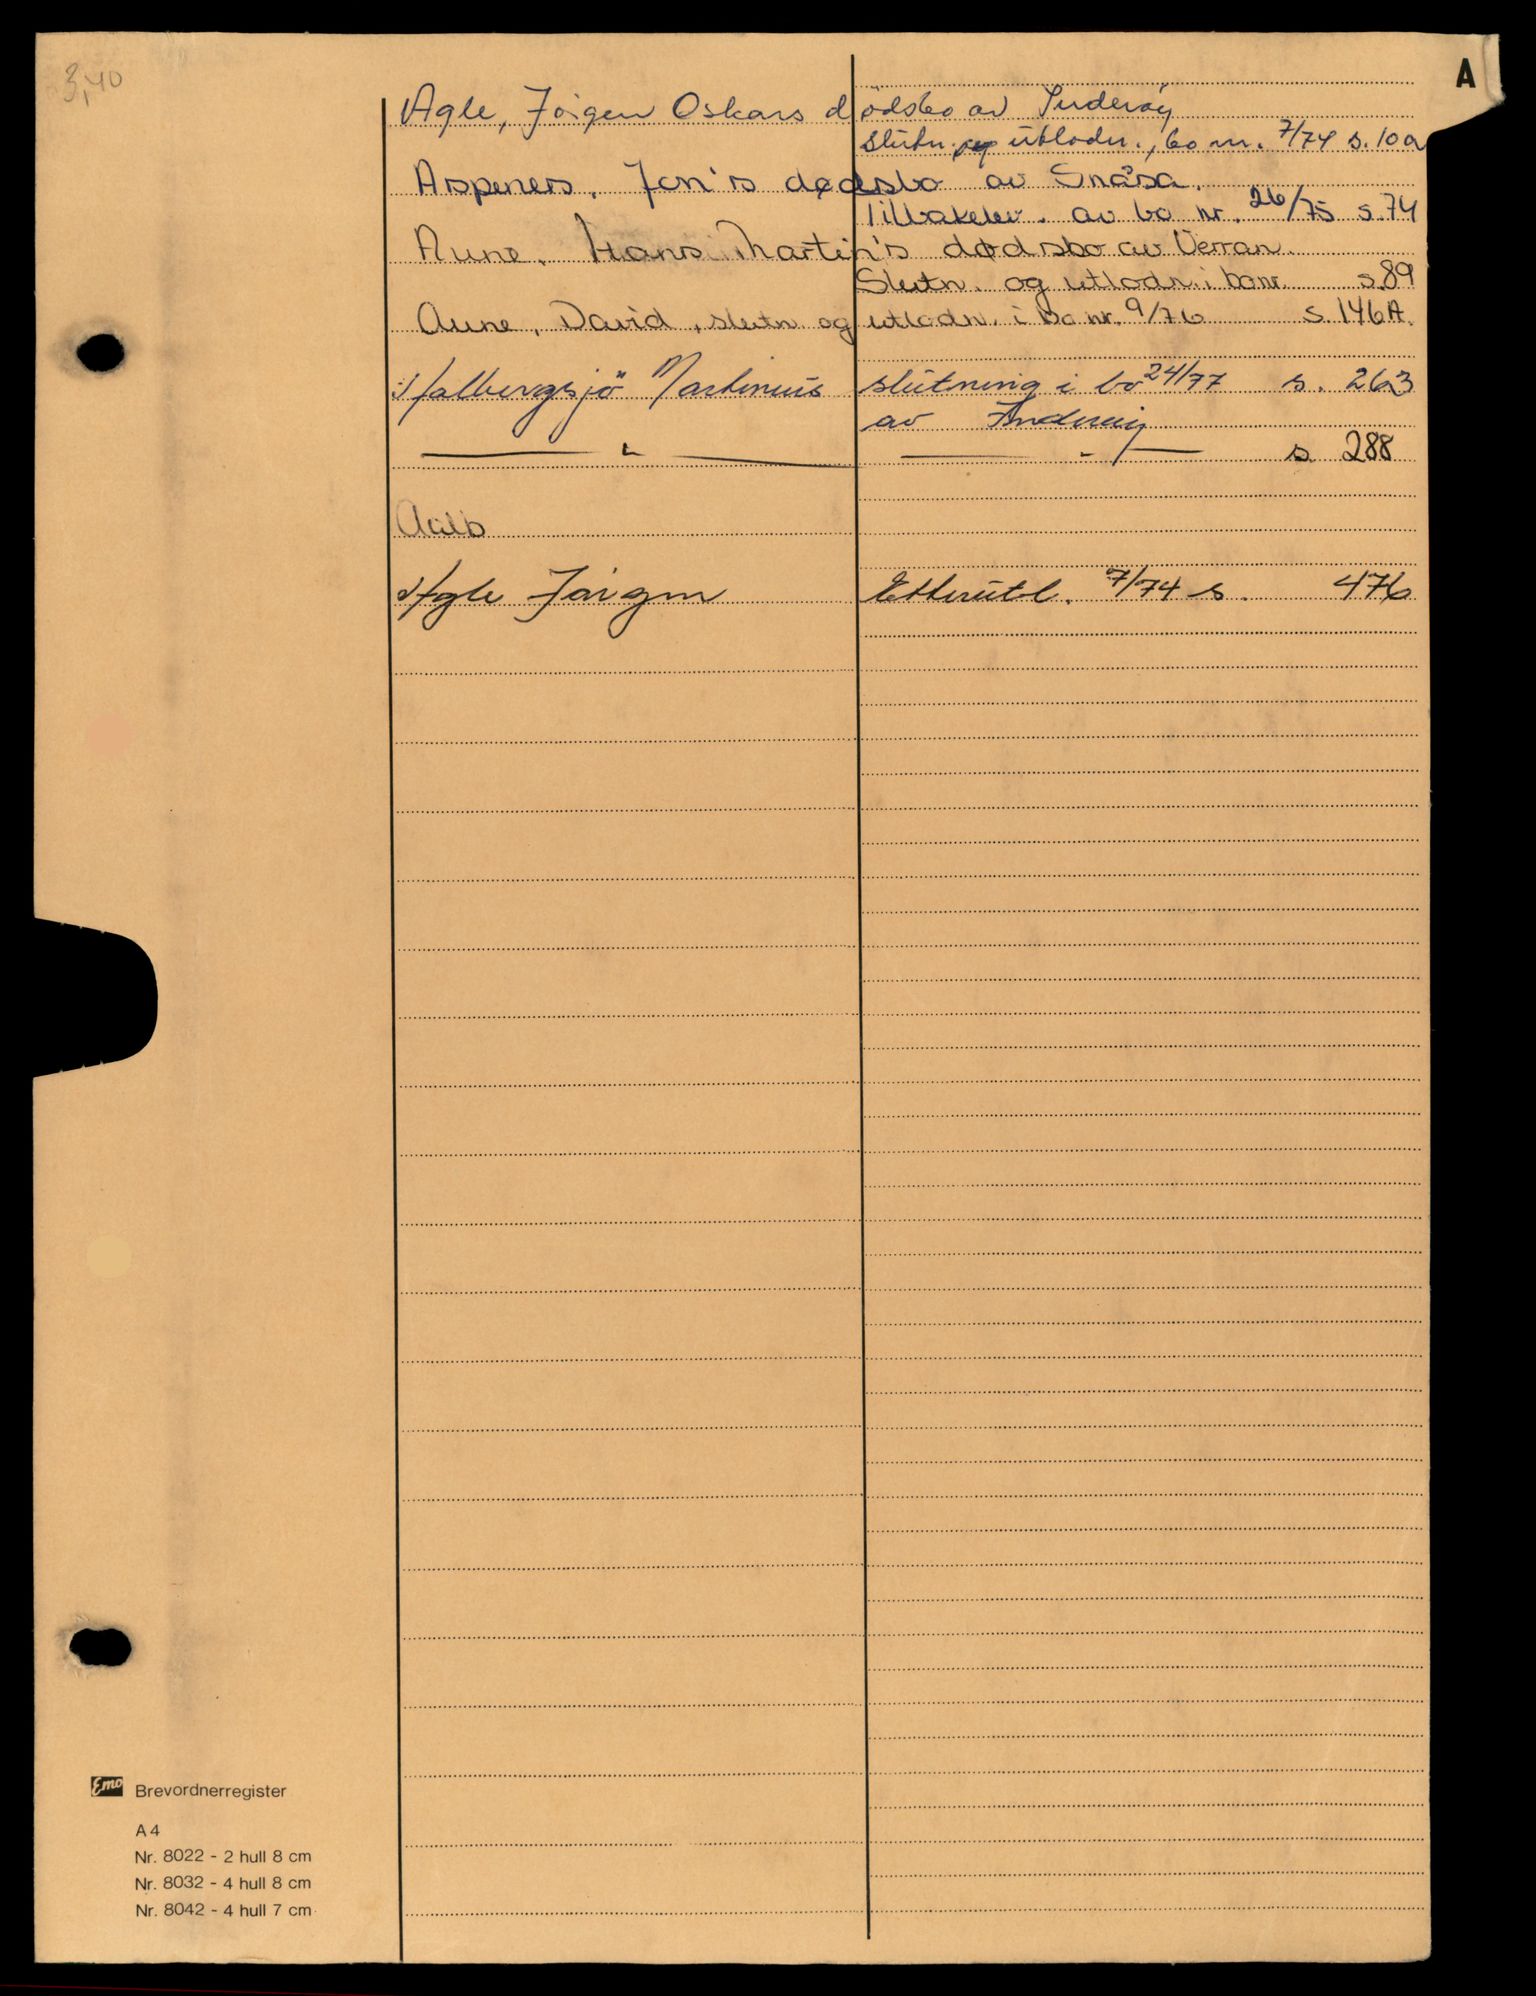 A
3,40
Agle, Jörgen Oskars dödsbo av Inderöy
slutn. og utlodn., bo nr. 7/74 s. 10a
Aspenes, Jon's dødsbo av Snåsa.
Tilbakelev. av bo nr. 26/75 s. 74
Aune, Hans Martin's dødsbo av Verran.
Slutn. og utlodn. i bo nr. s. 89
Aune, David, slutn og utlodn. i bo nr. 9/76 s. 146A.
Martinius slutning i bo 24/77 s. 263
av
— " — — " — s. 288
Aalb
Agle Jörgen Etterutl. 7/74 s. 476
Emo Brevordnerregister
A 4
Nr. 8022 - 2 hull 8 cm
Nr. 8032 - 4 hull 8 cm
Nr. 8042 - 4 hull 7 cm